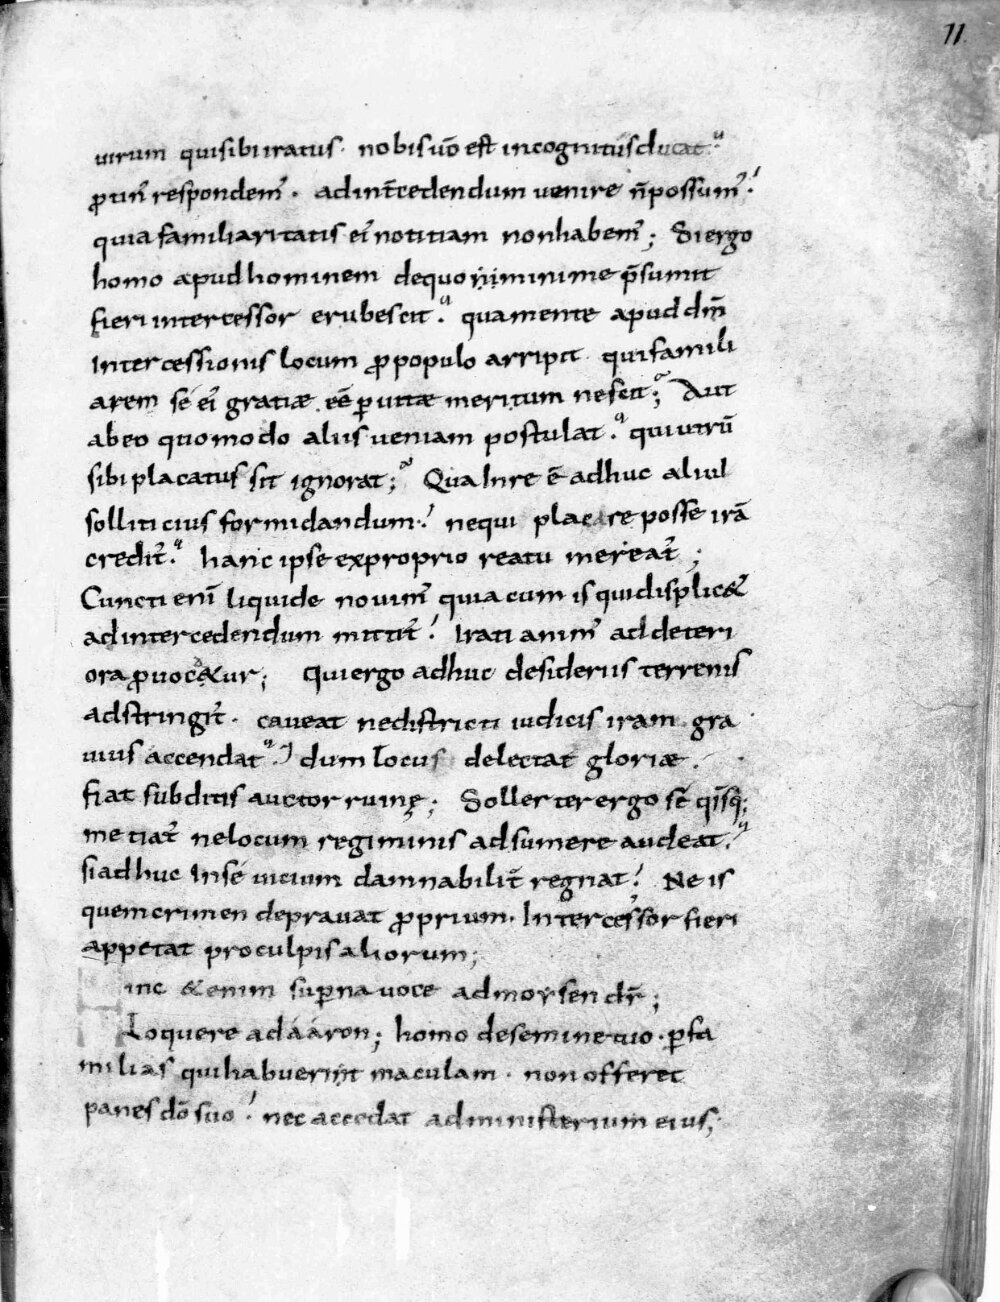 11
uirum qui sibi iratus · nobis uo᷒ est incognitus ducat·
ꝓtin᷒ respondem᷒ · ad int̄cedendum uenire n̄ possum᷒ ·
quia familiaritatis ei᷒ notitiam non habem᷒ ; Si ergo
homo apud hominem de quo minime p̄sumit
fieri intercessor erubescit · qua mente apud dm̄
intercessionis locum ꝓ populo arripit · qui famili
arem sé ei᷒ gratiæ eē ꝑ uitæ meritum nescit ; Aut
ab eo quomodo aliis ueniam postulat · qui utrū
sibi placatus sit ignorat ; Qua In re ē adhuc aliud
solliticius formidandum · ne qui placare posse irā
credit̄ · hanc ipse ex proprio reatu mereat̄ ;
Cuncti enī liquide nouim᷒ quia cum is qui displic&
ad intercedendum mittit̄ · Irati anim᷒ ad deteri
ora ꝓuoc&ur ; Qui ergo adhuc desideriis terrenis
adstringit̄ · caueat ne districti iudicis iram gra
uius accendat · dum locus delectat gloriæ ·
fiat subditis auctor ruinę ; Sollerter ergo sē q̄isq;
metiat̄ ne locum regiminis adsumere audeat ·
si adhuc In sé uicium damnabilit̄ regnat · Ne is
quem crimen deprauat ꝓprium · Intercessor fieri
appetat pro culpis aliorum ;
Hinc &enim suꝑna uoce ad moysen dr̄ ;
Loquere ad aáron ; homo de semine tuo · ꝑ fa
milias qui habuerint maculam · non offeret
panes dō suo · nec accedat ad ministerium eius ;